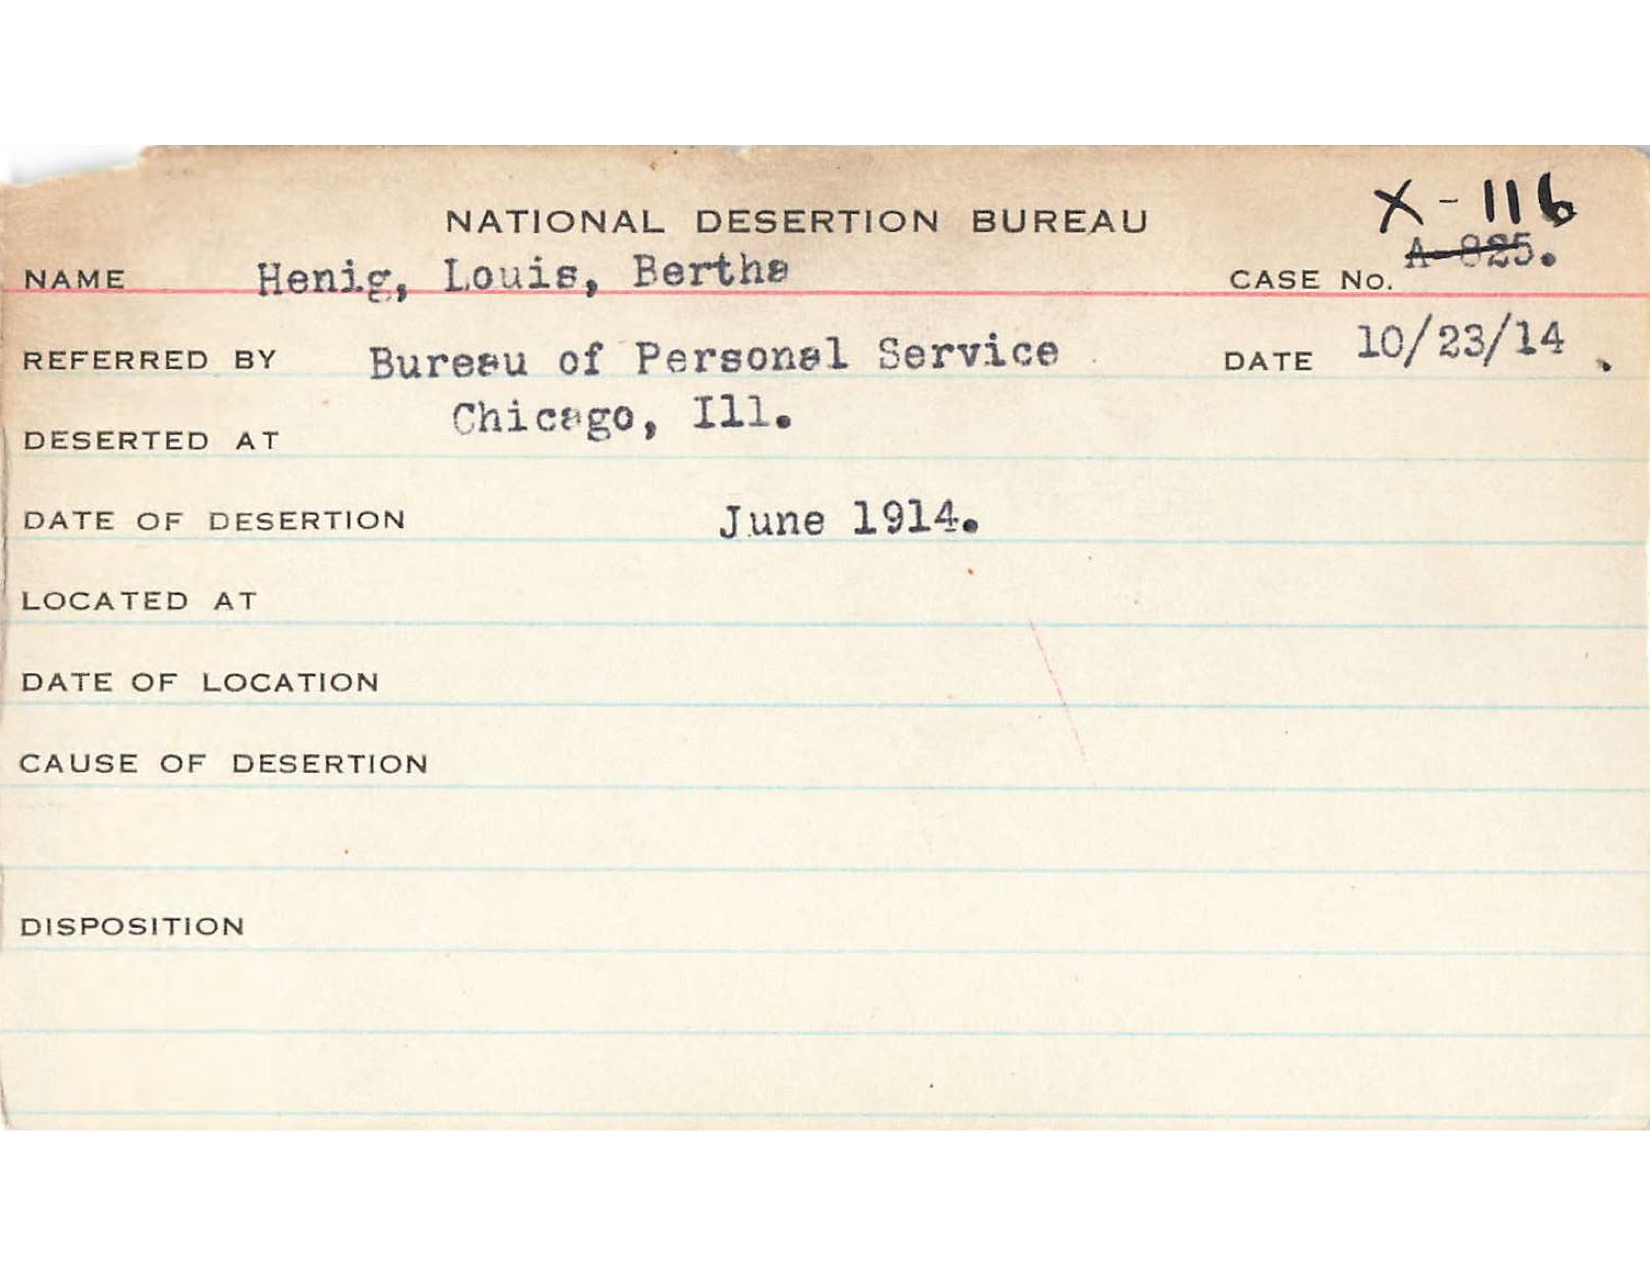 X-116
NATIONAL DESERTION BUREAU
NAME Henig, Louis, Bertha CASE No. A-825.
REFERRED BY Bureau of Personal Service DATE 10/23/14.
Chicago, Ill.
DESERTED AT
DATE OF DESERTION June 1914.
LOCATED AT
DATE OF LOCATION
CAUSE OF DESERTION
DISPOSITION